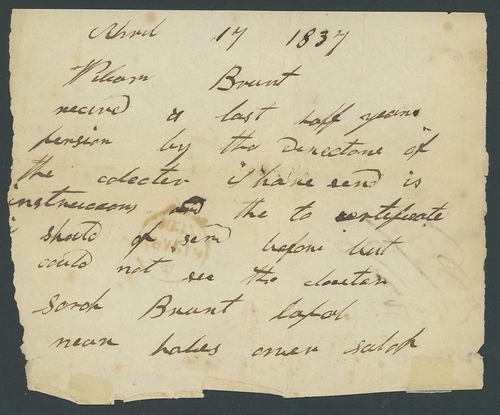 Abril 17 1837
Wileam Brunt
receved a last half years
pension by the directone of
the colecter I have send is
instruccons and the to certificate
should of send before but
could not see the docter
Sarah Brunt
near hales